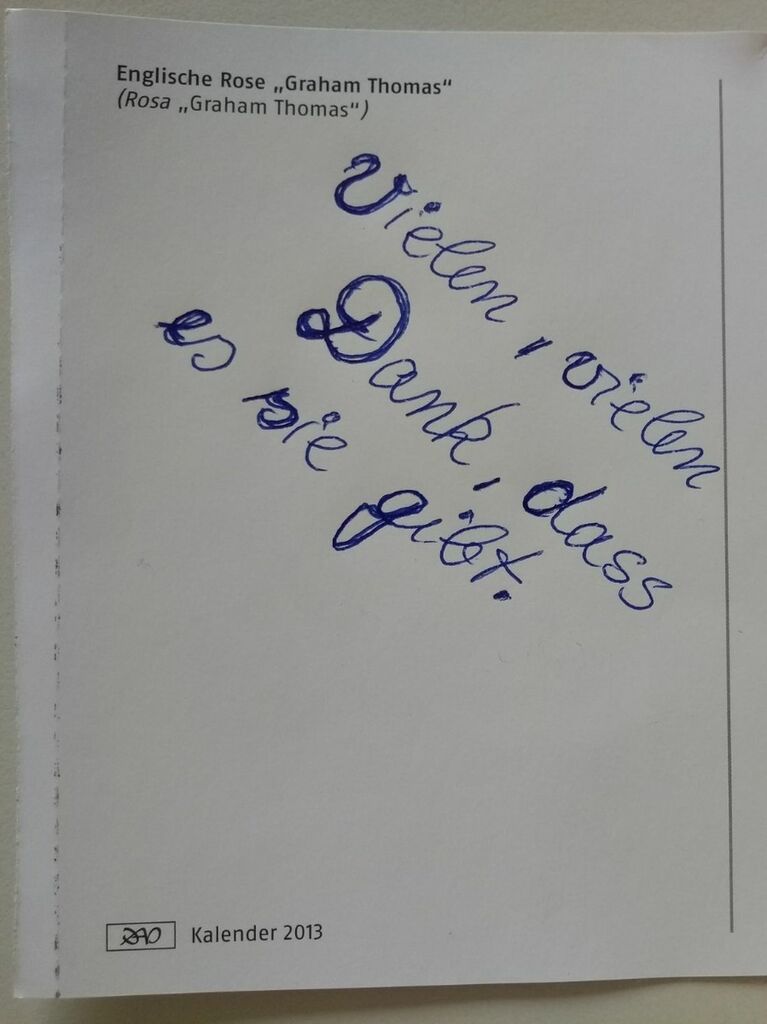 Englische Rose „Graham Thomas“
(Rosa „Graham Thomas“)
Vielen, vielen
Dank, dass
es sie gibt.
Kalender 2013